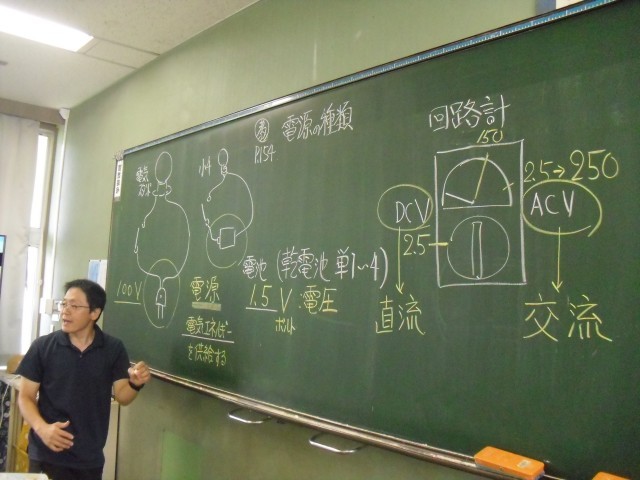 教 電源の種類
P.154
電気
スタンド
100V
電源
電気エネルギー
を供給する
電池 (乾電池 単1~4)
1.5V 電圧
ボルト
回路計
150
2.5→250
DCV
ACV
2.5
直流
交流